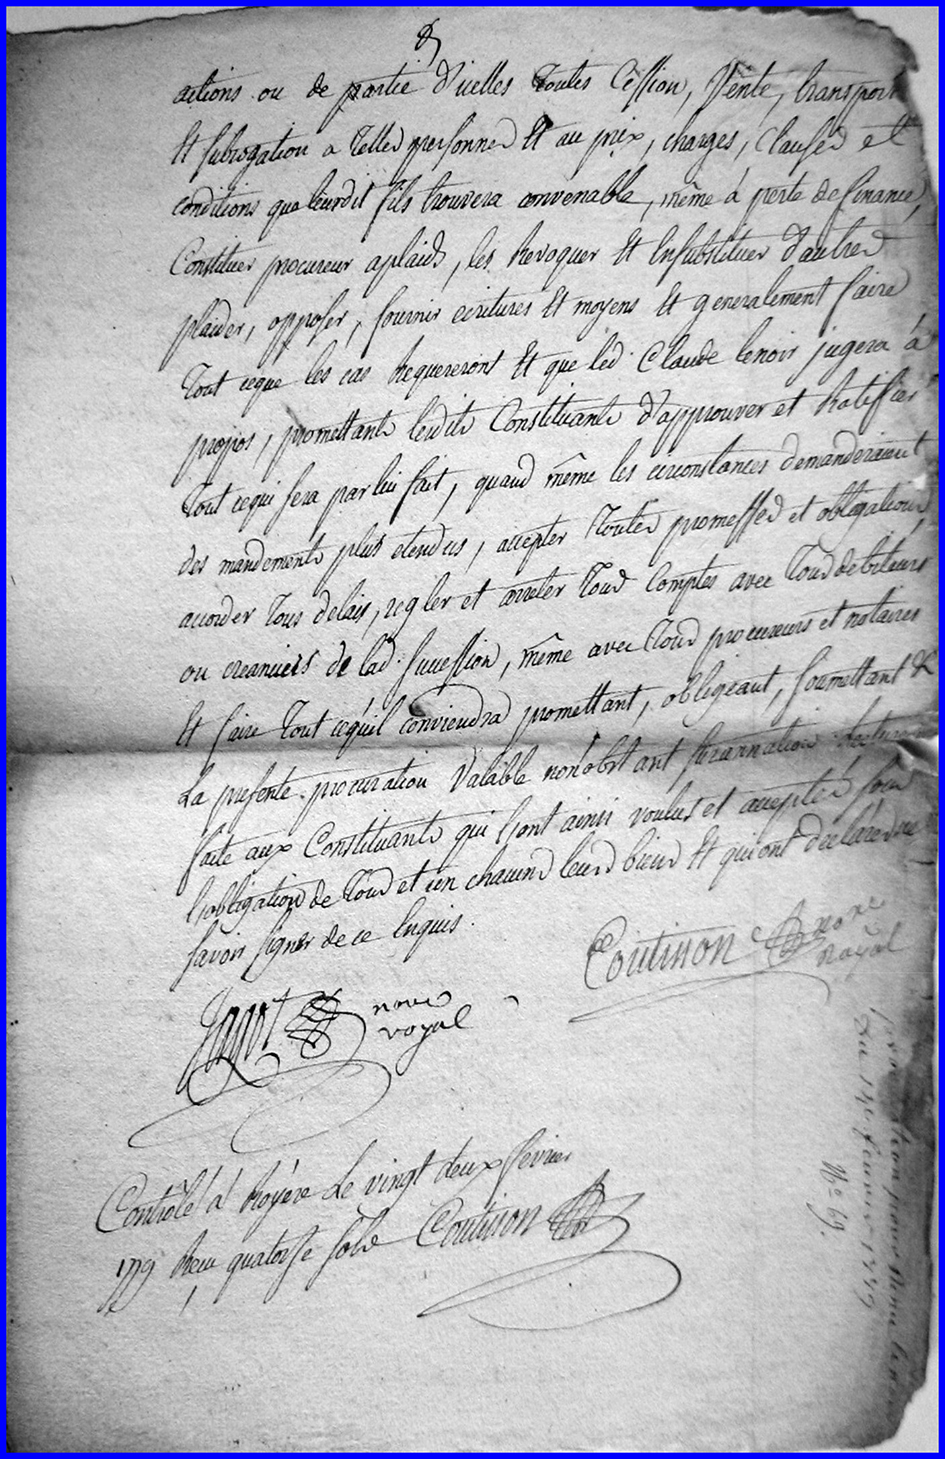 actions ou de partie d'icelles toutes Cession, Vente, transport
Et subrogation a telles personnes Et au prix, charges, clauses et
conditions que leurdit fils trouvera convenable, même à perte de finance,
Constituer procureur aplaids, les Revoquer Et Ensubstituer d'autres
plaider, opposer, fournir ecritures Et moyens Et generalement faire
Tout ceque les cas Requereront Et que led. Claude lenoir jugera à
propos, promettants lesdits Constituants d'approuver et Ratifier
Tout cequi sera par lui fait, quand même les circonstances demanderaient
des mandements plus etendus, accepter Toutes promesses et obligations
accorder Tous delais, regler et arreter Tous Comptes avec Tous debiteurs
ou creanciers de lad. succession, même avec Tous procureurs et notaires
Et faire Tout cequil conviendra promettant, obligeant, soumettant &
La presente procuration Valable nonobstant surannation Lecture
faite aux Constituants qui l'ont ainsi voulus et acceptés sous
L'obligation de Tous et un chacuns leurs biens Et qui ont declarés ne
savoir signer de ce Enquis.
Coutisson nore
royal
Jagot nore
royal
Contrôlé à Royère Le vingt deux fevrier
1779 Reçu quatorse sols Coutisson
Du 14 fevrier 1779
No 69.